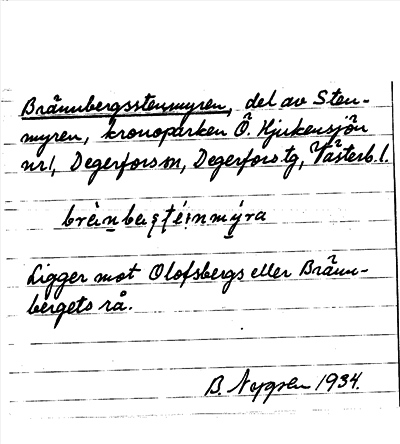 Brännbergsstenmyren, del av Sten-
myren, kronoparken Ö. Hjukensjön
nr1, Degerfors sn, Degerfors tg, Västerb. l.
Ligger mot Olofsbergs eller Bränn-
bergets rå.
B. Nygren 1934.